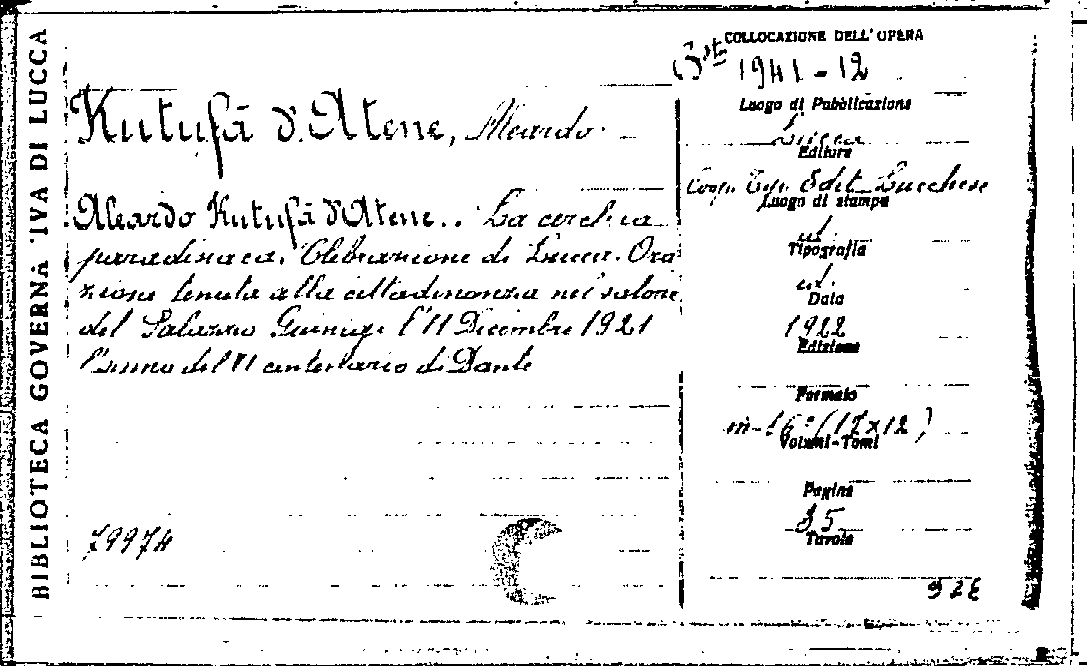 BIBLIOTECA GOVERNATIVA DI LUCCA
Kutufà d'Atene, Aleardo.
Aleardo Kutufà d'Atene.. La cerchia
paradisiaca. Celebrazione di Lucca. Ora
zione tenuta alla cittadinanza nel salone
del Palazzo Guinigi l'11 Dicembre 1921
l'anno del VI centenario di Dante
79974
COLLOCAZIONE DELL'OPERA
Bta 1941-12
Luogo di Pubblicazione
Lucca
Editore
Coop. Tip. Edit. Lucchese
Luogo di stampa
id.
Tipografia
id.
Data
1922
Edizione
Formato
in-16° (17x12)
Volumi-Tomi
Pagine
35
Tavole
92E